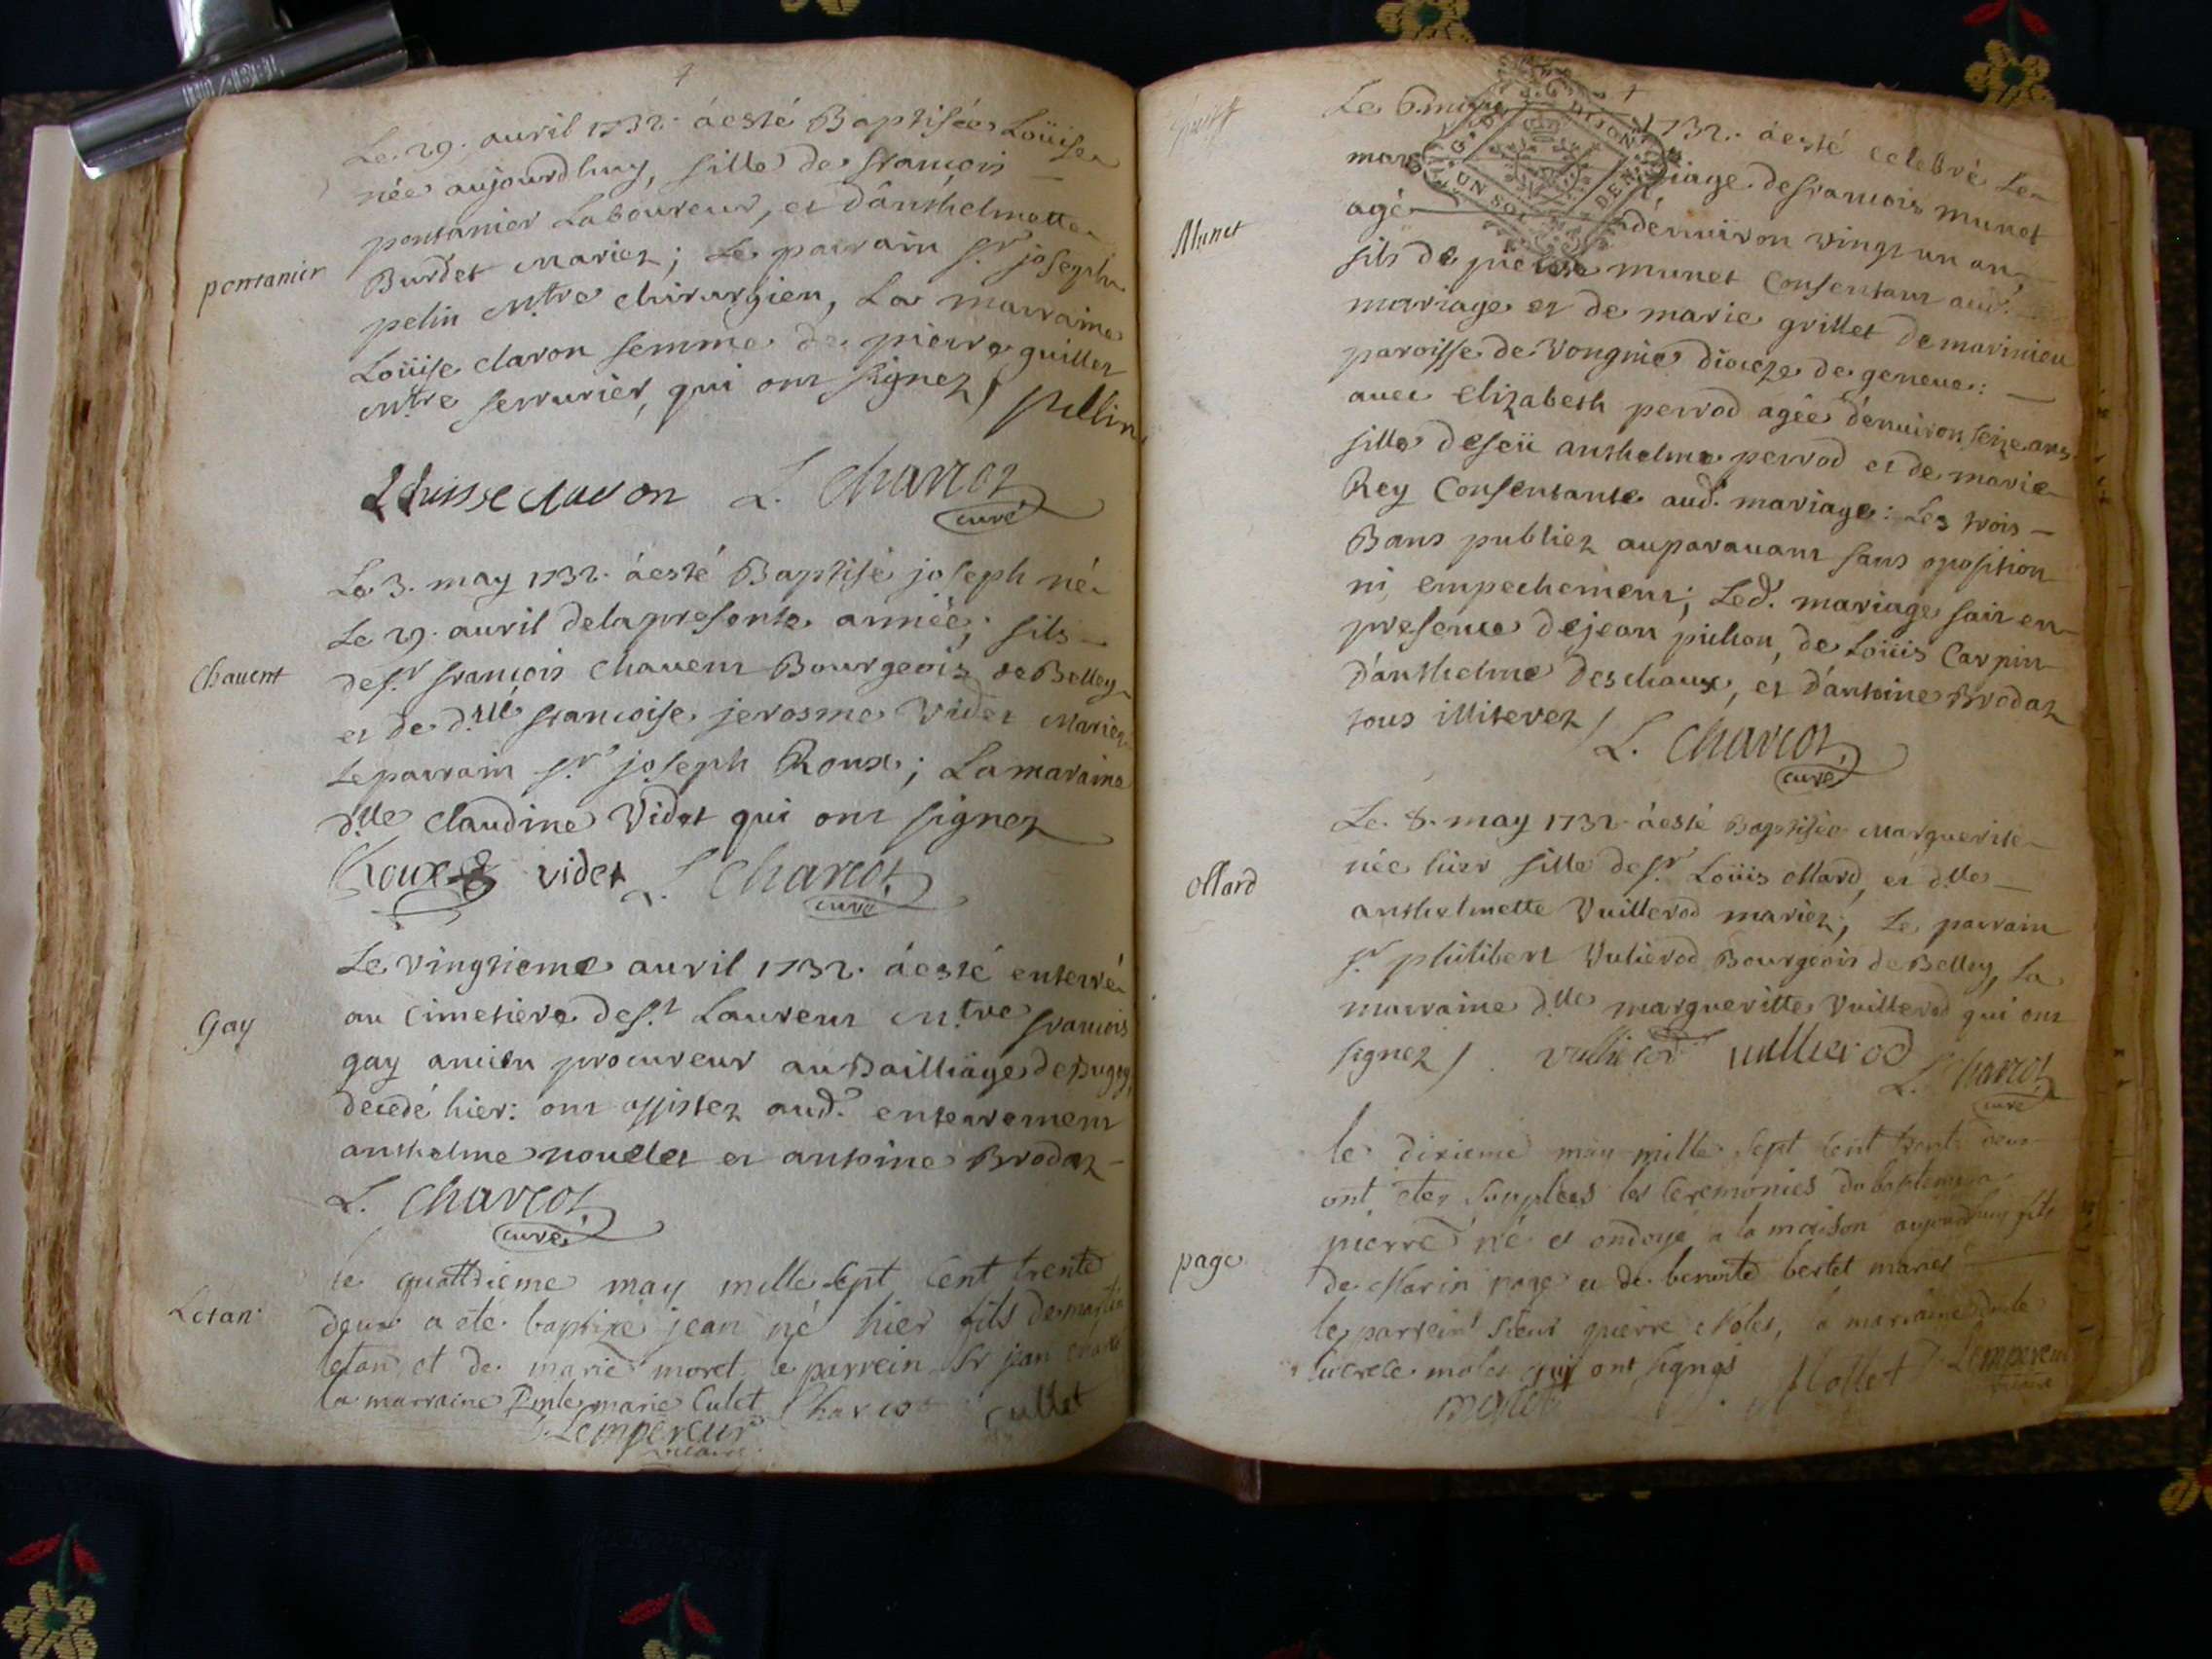 Le 29. auril 1732. áesté Baptisée Loüise
née aujourdhuy, fille de francois
pontanier Laboureur, et d'anthelmette
pontanier
Burdet mariez; Le parrain sr. joseph
pelin mtre chirurgien, La marraine
Loüise claron femme de pierre guillet
mtre serrurier, qui ont signez / pellin
Louisse claron L. Charcot
curé
Le 3. may 1732. áesté Baptisé joseph né
Le 29. auril delapresente année; fils
Chauent
de sr. francois Chauent Bourgeois de Belley
et de dlle francoise jerosme Videt Mariez
Le parrain sr. joseph Roux; La maraine
dlle claudine Videt qui ont signez
Roux videt L. Charcot
curé
Le vingtieme auril 1732. áesté enterré
au Cimetiere de st. Laurent mtre francois
Gay
gay ancien procureur au Bailliage de Bugey,
decedé hier: ont assistez aud. enterrement
anthelme nouelet et antoine Brodaz
L. Charcot
curé
le quattrieme may mille sept cent trente
deux a eté baptizé jean né hier fils de martin
Letan
letan et de marie moret le parrein Sr jean
la marraine Dmle marie Culet Charcot cullet
Lempereur
vicaire
Le 6. 1732. áesté celebré Le
mar iage de francois munet
Munet
agé d'enuiron vingt un an,
GEN DE DIJON
UN SOL DEN
fils de pierre munet Consentant aud.
mariage et de marie grillet de marinieu
paroisse de Vongnie dioceze de geneue:
auec Elizabeth perrod agée d'enuiron seize ans
fille de feü anthelme perrod et de marie
Rey Consentante aud. mariage: Les trois
Bans publiez auparauant sans oposition
ni empechement; Led. mariage fait en
presence de jean pichon, de Loüis Carpin
d'anthelme deschaux, et d'antoine Brodaz
tous illiterez / L. Charcot
curé
Le 8. may 1732 áesté Baptisée Marguerite
née hier fille de sr. Loüis ollard, et dlle
ollard
anthelmette Vuillerod mariez; Le parrain
sr. philibert Vulierod Bourgeois de Belley, La
marraine dlle margueritte Vuillerod qui ont
signez / vullierod vullierod L. Charcot
curé
le dixieme may mille sept cent trente deux
ont etes supplées les ceremonies du bapteme a
pierre né et ondoyé a la maison aujourdhuy fils
page
de Marin page et de benoite bertet mariés
le parrein sieur pierre Molet, la marraine dmle
molet qui ont signés Mollet Lempereur
molet vicaire